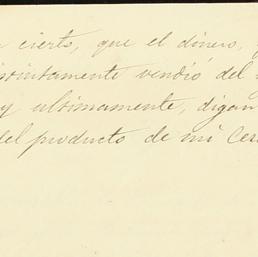 cierto, que el dinero,
distintamente vendió del
y ultimamente, digan
del producto de mi